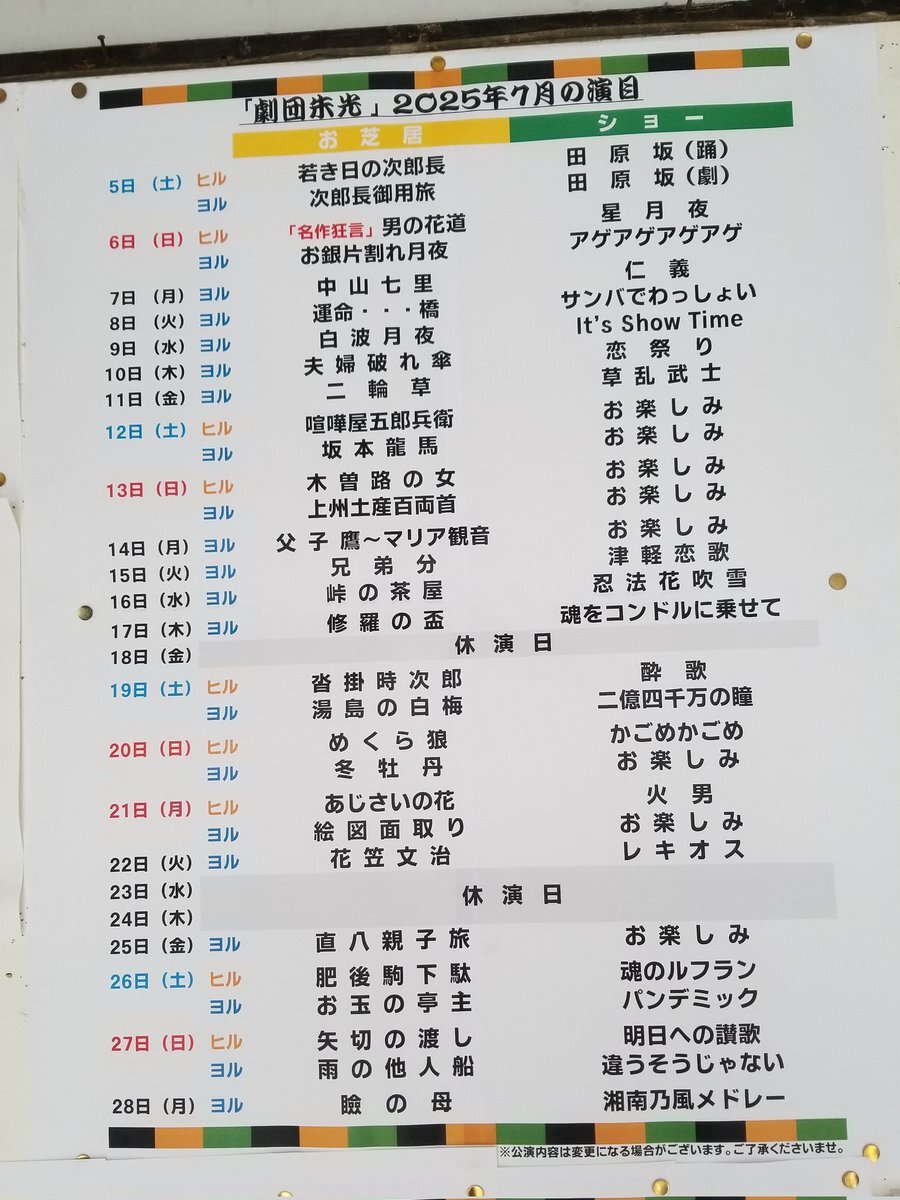 「劇団朱光」2025年7月の演目
お芝居 ショー
5日 （土） ヒル 若き日の次郎長 田原坂（踊）
ヨル 次郎長御用旅 田原坂（劇）
6日 （日） ヒル 「名作狂言」男の花道 星月夜
ヨル お銀片割れ月夜 アゲアゲアゲアゲ
7日 （月） ヨル 中山七里 仁義
8日 （火） ヨル 運命・・・橋 サンバでわっしょい
9日 （水） ヨル 白波月夜 It's Show Time
10日（木） ヨル 夫婦破れ傘 恋祭り
11日（金） ヨル 二輪草 草乱武士
12日（土） ヒル 喧嘩屋五郎兵衛 お楽しみ
ヨル 坂本龍馬 お楽しみ
13日（日） ヒル 木曽路の女 お楽しみ
ヨル 上州土産百両首 お楽しみ
14日（月） ヨル 父子鷹～マリア観音 お楽しみ
15日（火） ヨル 兄弟分 津軽恋歌
16日（水） ヨル 峠の茶屋 忍法花吹雪
17日（木） ヨル 修羅の盃 魂をコンドルに乗せて
18日（金） 休演日
19日（土） ヒル 沓掛時次郎 酔歌
ヨル 湯島の白梅 二億四千万の瞳
20日（日） ヒル めくら狼 かごめかごめ
ヨル 冬牡丹 お楽しみ
21日（月） ヒル あじさいの花 火男
ヨル 絵図面取り お楽しみ
22日（火） ヨル 花笠文治 レキオス
23日（水） 休演日
24日（木）
25日（金） ヨル 直八親子旅 お楽しみ
26日（土） ヒル 肥後駒下駄 魂のルフラン
ヨル お玉の亭主 パンデミック
27日（日） ヒル 矢切の渡し 明日への讃歌
ヨル 雨の他人船 違うそうじゃない
28日（月） ヨル 瞼の母 湘南乃風メドレー
※公演内容は変更になる場合がございます。ご了承くださいませ。